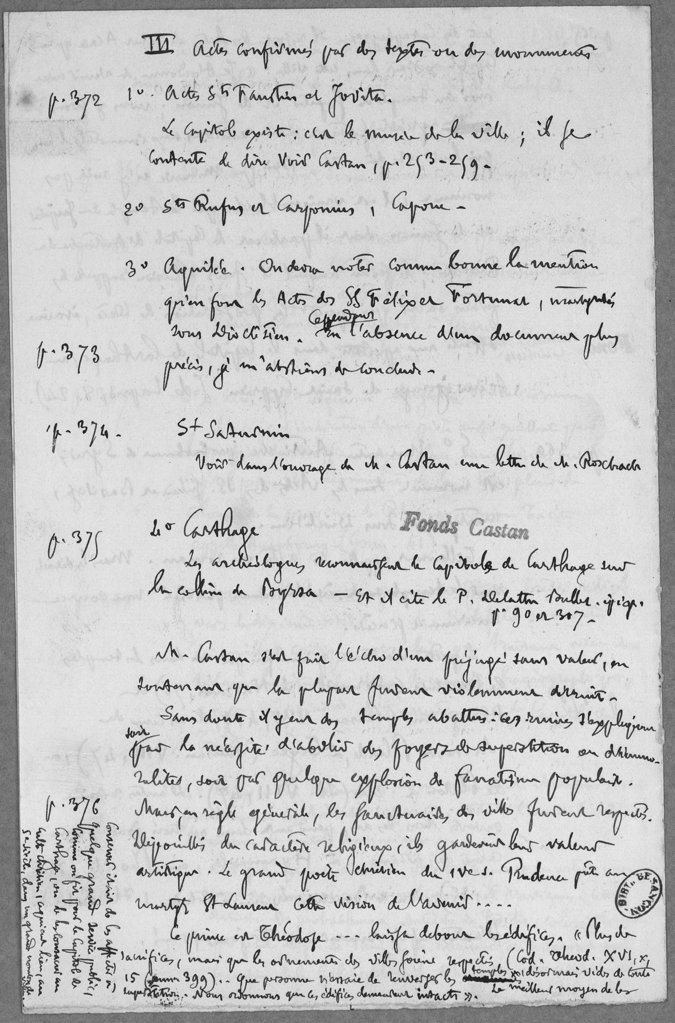 III Actes confirmés par des textes ou des monuments
p. 372 1º Actes Sts Faustin et Jovita.
Le Capitole existe : c'est le musée de la ville ; il se
contente de dire Voir Castan, p. 253-259-
2º Sts Rufus et Carponius, Capoue -
3º Aquilée. On devra noter comme bonne la mention
qu'en font les Actes des SS Félix et Fortunat, martyrisés
sous Dioclétien. Cependant En l'absence d'un document plus
p. 373 précis, je m'abstiens de conclure -
p. 374 - St Saturnin
Voir dans l'ouvrage de M. Castan une lettre de M. Roschach
p. 375 4º Carthage
Fonds Castan
Les archéologues reconnaissent le Capitole de Carthage sur
la colline de Byrsa - Et il cite le P. Delattre Bullet. épigr.
p. 90 et 307-
M. Castan s'est fait l'écho d'un préjugé sans valeur, en
soutenant que la plupart furent violemment détruits -
Sans doute il y eut des temples abattus : ces ruines s'expliquent
soit par la nécessité d'abolir des foyers de superstition ou d'immo-
ralités, soit par quelque explosion de fanatisme populaire.
Mais, en règle générale, les sanctuaires des villes furent respectés.
Dépouillés du caractère religieux, ils gardèrent leur valeur
artistique. Le grand poète chrétien du IVe s. Prudence prête au
martyr St Laurent cette vision de l'avenir ....
Ce prince est Théodose --- laisse debout les édifices. « Plus de
sacrifices, mais que les ornements des villes soient respectés (Cod. Theod. XVI, x,
15 (ann 399) .. Que personne n'essaie de renverser les temples désormais vides de toute
superstition. Nous ordonnons que ces édifices demeurent intacts ».
Le meilleur moyen de les
p. 376 conserver était de les affecter à
quelque grand service public,
comme on fit pour le Capitole de
Carthage, ou de les consacrer au
culte chrétien ;
BIBL. BESANÇON